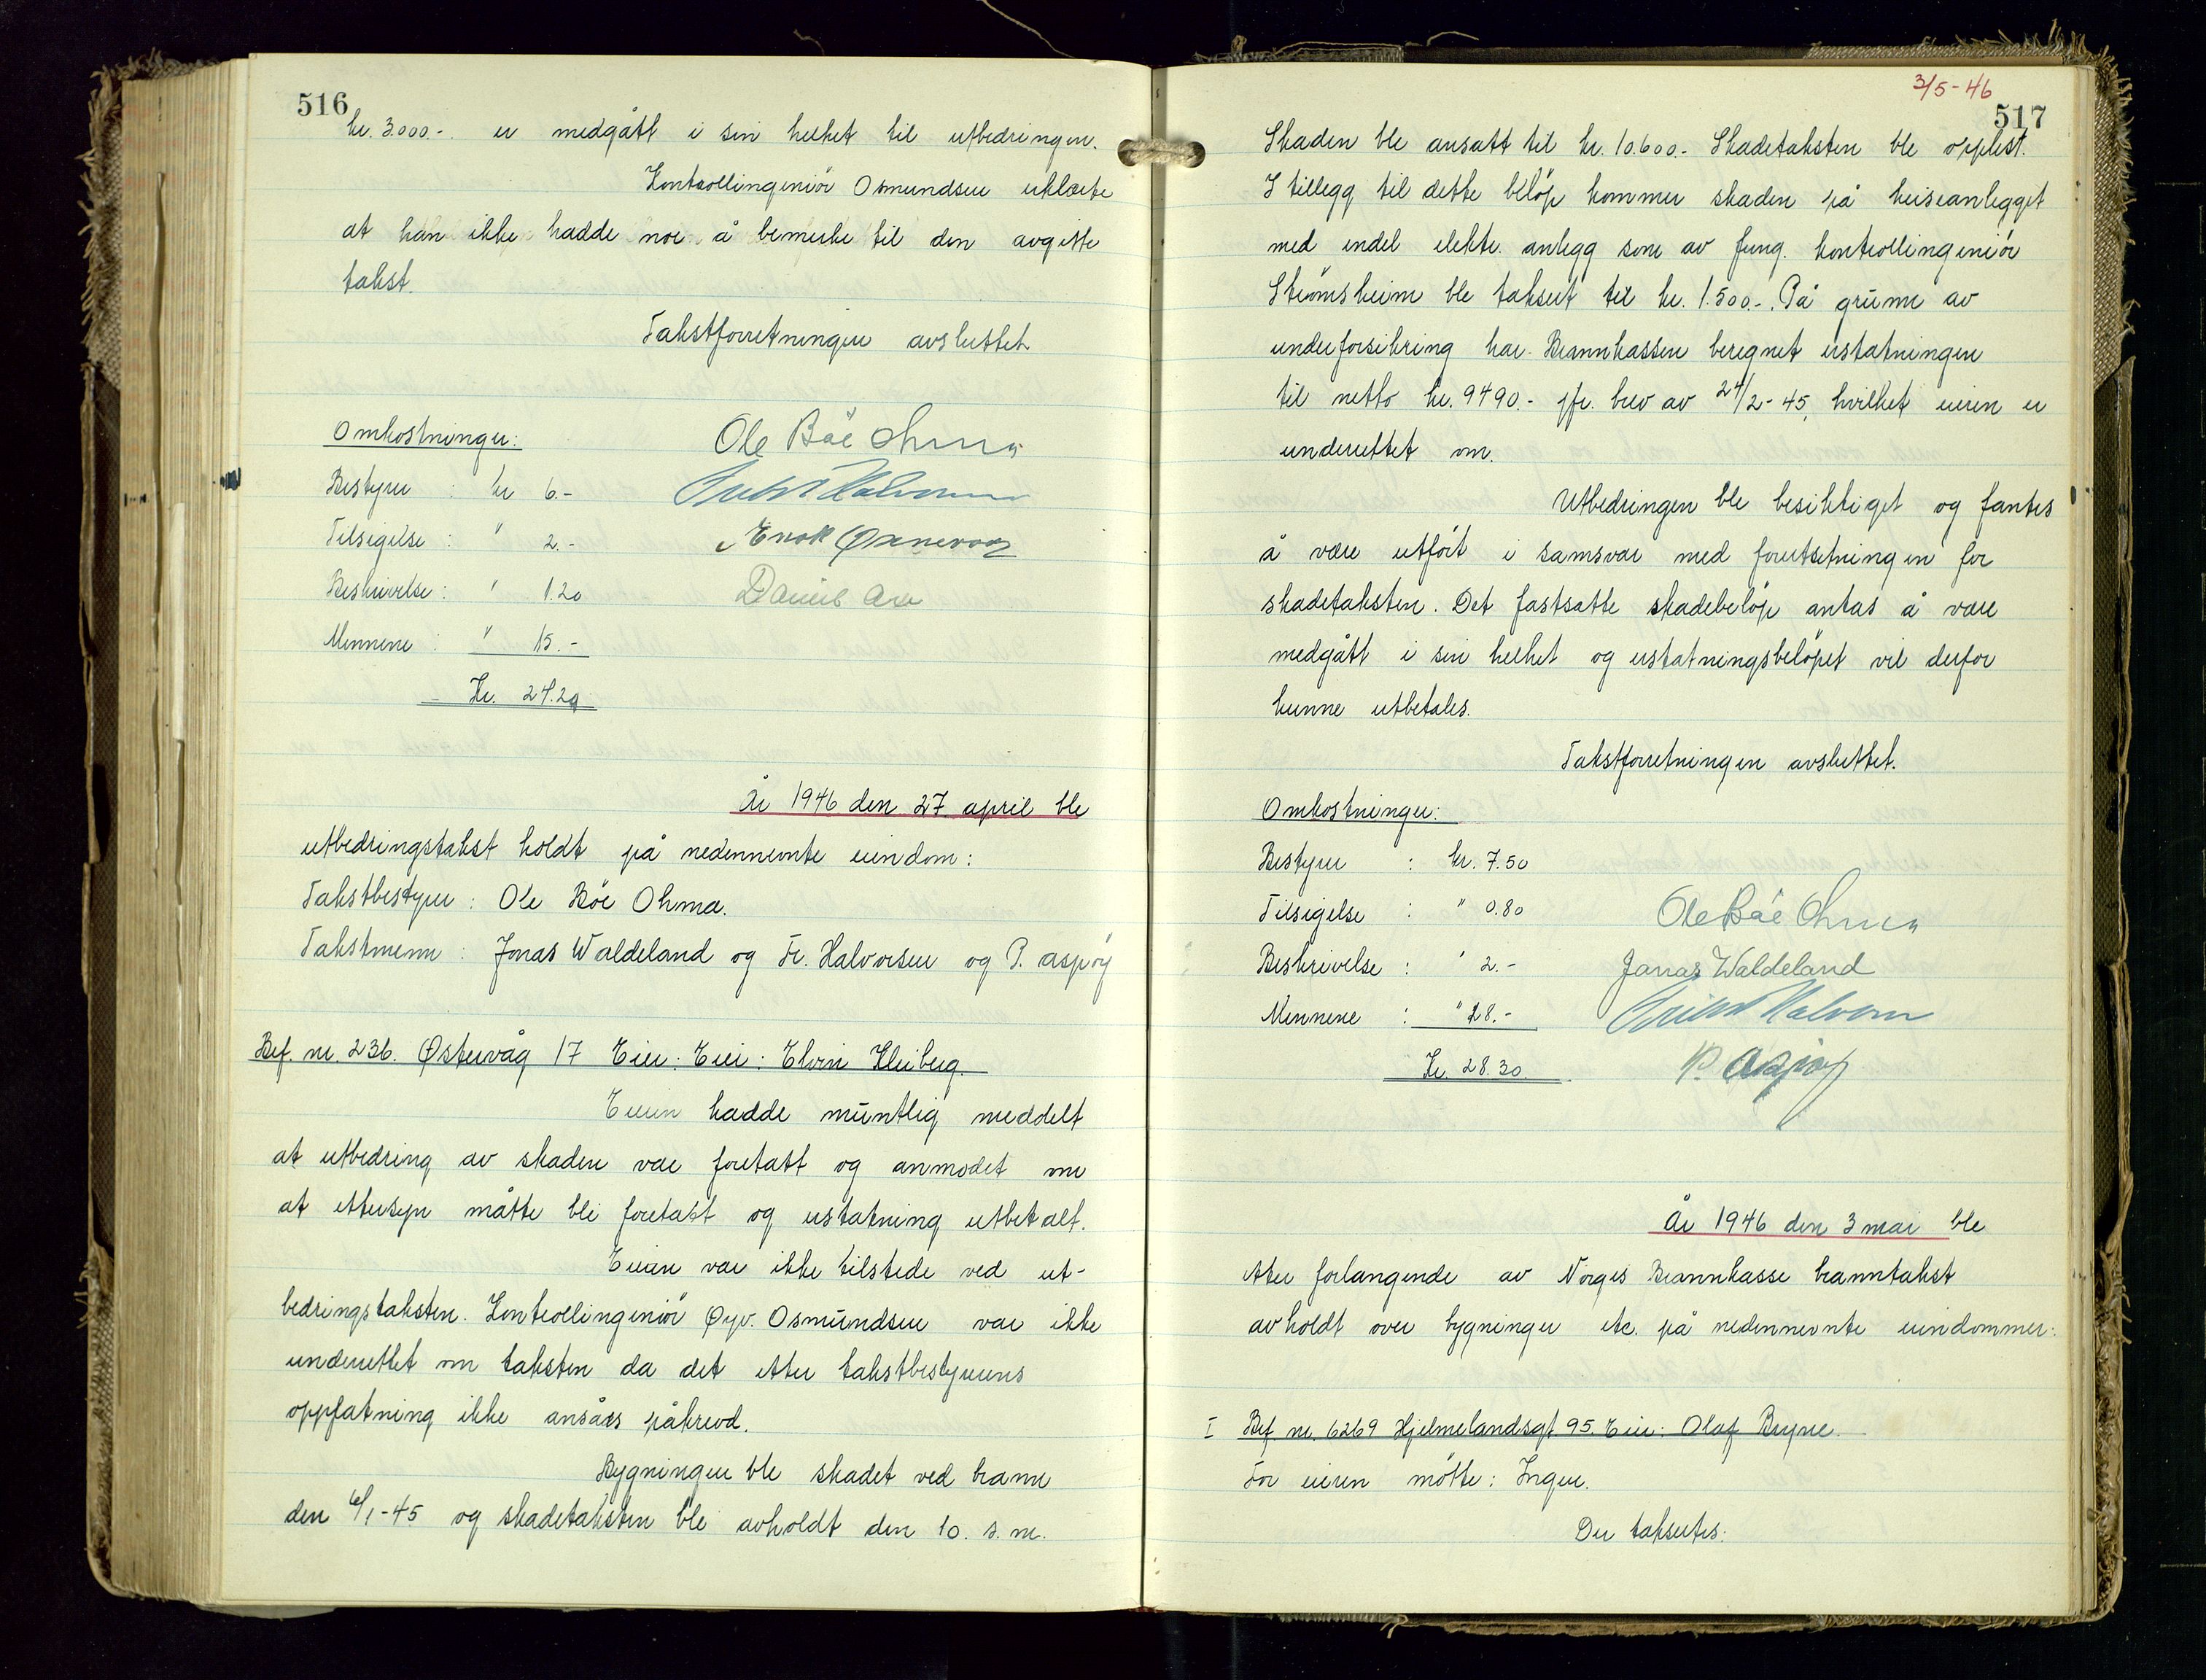 516
kr. 3.000.- er medgått i sin helhet til utbedringen.
Kontrollingeniör Osmundsen erklærte
at han ikke hadde noe å bemerke til den avgitte
takst.
Takstforretningen avsluttet
Omkostninger:
Bestyrer : kr 6.-
Tilsigelse : " 2.-
Beskrivelse : " 1.20
Mennene : " 15.-
Kr. 24.20
Ole Böe Ohma
Halvorsen
Enok
Daniel
År 1946 den 27. april ble
utbedringstakst holdt på nedennevnte eiendom:
Takstbestyrer : Ole Böe Ohma.
Takstmenn : Jonas Waldeland og Fr. Halvorsen og P. Aspöy
Bef. nr. 236. Østervåg 17 Eier: Eier: Elvin Kleiberg.
Eieren hadde muntlig meddelt
at utbedring av skaden var foretatt og anmodet om
at ettersyn måtte bli foretatt og erstatning utbetalt.
Eieren var ikke tilstede ved ut-
bedringstaksten. Kontrollingeniör Øyv. Osmundsen var ikke
underrettet om taksten da det etter takstbestyrerens
oppfatning ikke ansåes påkrevd.
Bygningen ble skadet ved brann
den 6/1-45 og skadetaksten ble avholdt den 10. s.m.
3/5-46
517
Skaden ble ansatt til kr. 10.600.- Skadetaksten ble opplest.
I tillegg til dette beløp kommer skaden på heiseanlegget
med endel elektr. anlegg som av fung. kontrollingeniör
Strömsheim ble taksert til kr. 1.500.-. På grunn av
underforsikring har Brannkassen beregnet erstatningen
til netto kr. 9490.- jfr. brev av 24/2-45, hvilket eieren er
underrettet om.
Utbedringen ble besiktiget og fantes
å være utfört i samsvar med forutsetningen for
skadetaksten. Det fastsatte skadebelöp antas å være
medgått i sin helhet og erstatningsbelöpet vil derfor
kunne utbetales.
Takstforretningen avsluttet.
Omkostninger:
Bestyrer : kr. 7.50
Tilsigelse : " 0.80
Beskrivelse : " 2.-
Mennene : " 18.-
Kr. 28.30.
Ole Böe Ohma
Jonas Waldeland
Halvorsen
P. Aspöy
År 1946 den 3 mai ble
etter forlangende av Norges Brannkasse branntakst
avholdt over bygninger etc. på nedennevnte eiendommer:
I Bef. nr. 6269 Hjelmelandsgt 95. Eier: Olaf Bryne.
For eieren mötte: Ingen.
Der takseres: